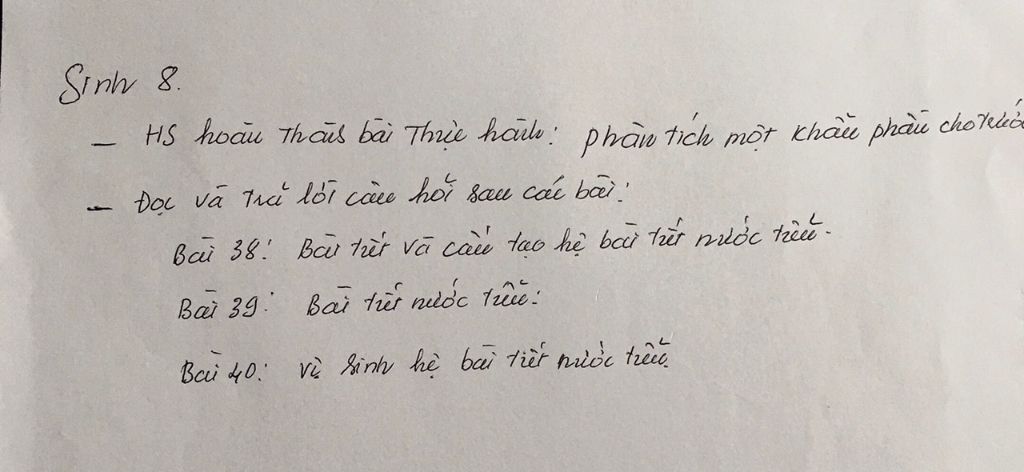 Sinh 8.
- HS hoàn thành bài Thực hành: phân tích một khẩu phần cho trước
- Đọc và trả lời câu hỏi sau các bài:
Bài 38: Bài tiết và cấu tạo hệ bài tiết nước tiểu.
Bài 39: Bài tiết nước tiểu:
Bài 40: Vệ sinh hệ bài tiết nước tiểu